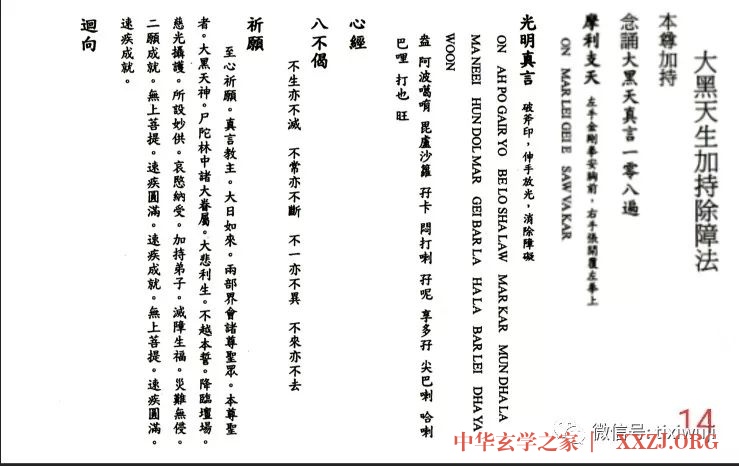 大黑天生加持除障法
本尊加持
念誦大黑天真言一零八遍
摩利支天 左手金剛拳安胸前，右手張開覆左拳上
ON MAR LEI GEI E SAW VA KAR
光明真言 破斧印，伸手放光，消除障礙
ON AH PO GAIR YO BE LO SHA LAW MAR KAR MUN DHA LA
MA NEEI HUN DOL MAR GEI BAR LA HA LA BAR LEI DHA YA
WOON
盎 阿波噶唷 毘盧沙羅 孖卡 悶打喇 孖呢 享多孖 尖巴喇 哈喇
巴哩 打也 旺
心經
八不偈
不生亦不滅 不常亦不斷 不一亦不異 不來亦不去
祈願
至心祈願。真言教主。大日如來。兩部界會諸尊聖眾。本尊聖
者。大黑天神。尸陀林中諸大眷屬。大悲利生。不越本誓。降臨壇場。
慈光攝護。所設妙供。哀愍納受。加持弟子。滅障生福。災難無侵。
二願成就。無上菩提。速疾圓滿。速疾成就。無上菩提。速疾圓滿。
速疾成就。
迴向
14
微信号: tixiwuji
中华玄学之家 XXZJ.ORG